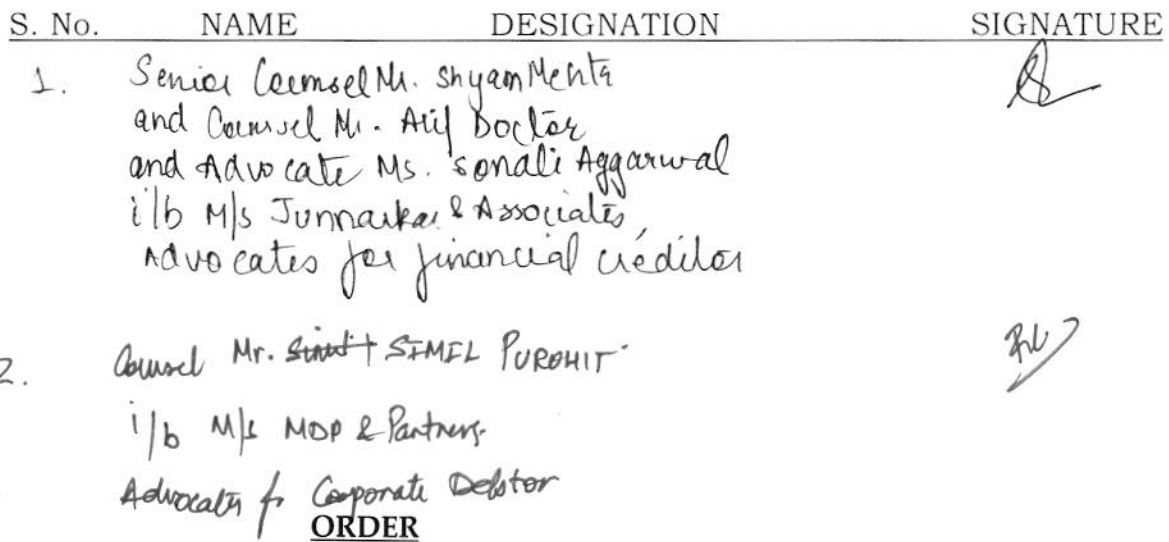 S. No. NAME DESIGNATION SIGNATURE
1. Senior Counsel Mr. Shyam Mehta
and Counsel Mr. Arif Doctor
and Advocate Ms. Sonali Aggarwal
i/b M/s Junnarkar & Associates,
Advocates for financial creditor
2. Counsel Mr. SIMIL PUROHIT
i/b M/s MDP & Partners.
Advocates for Corporate Debtor
ORDER